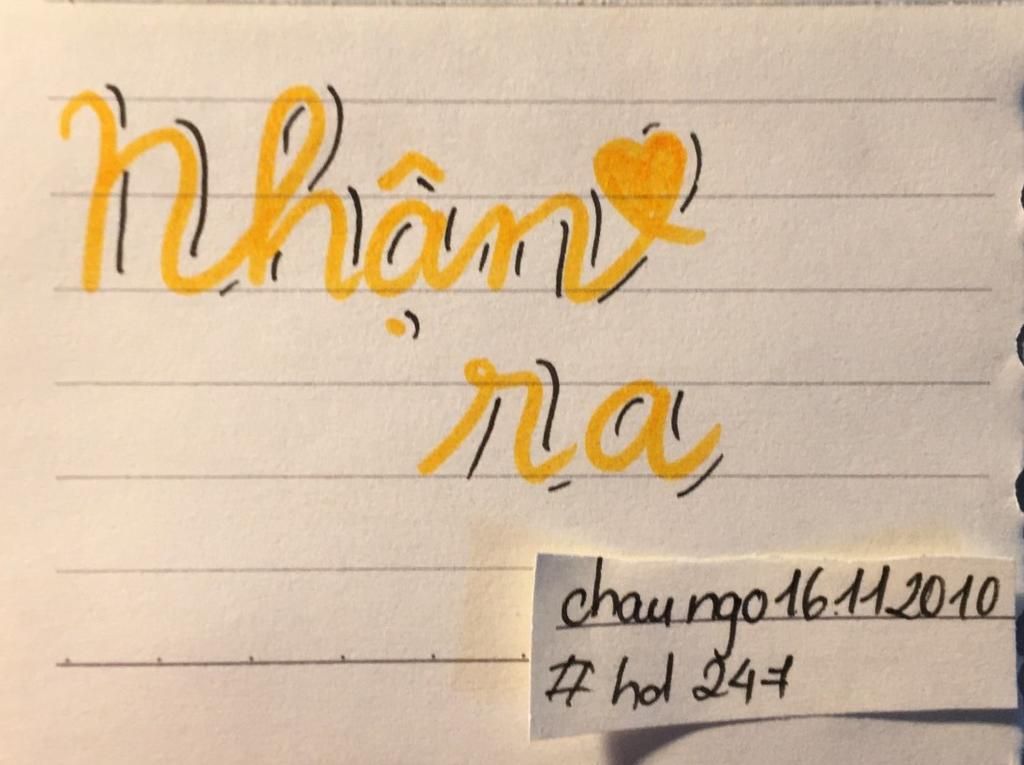 Nhận
ra
chaungo16.11.2010
# hd 247